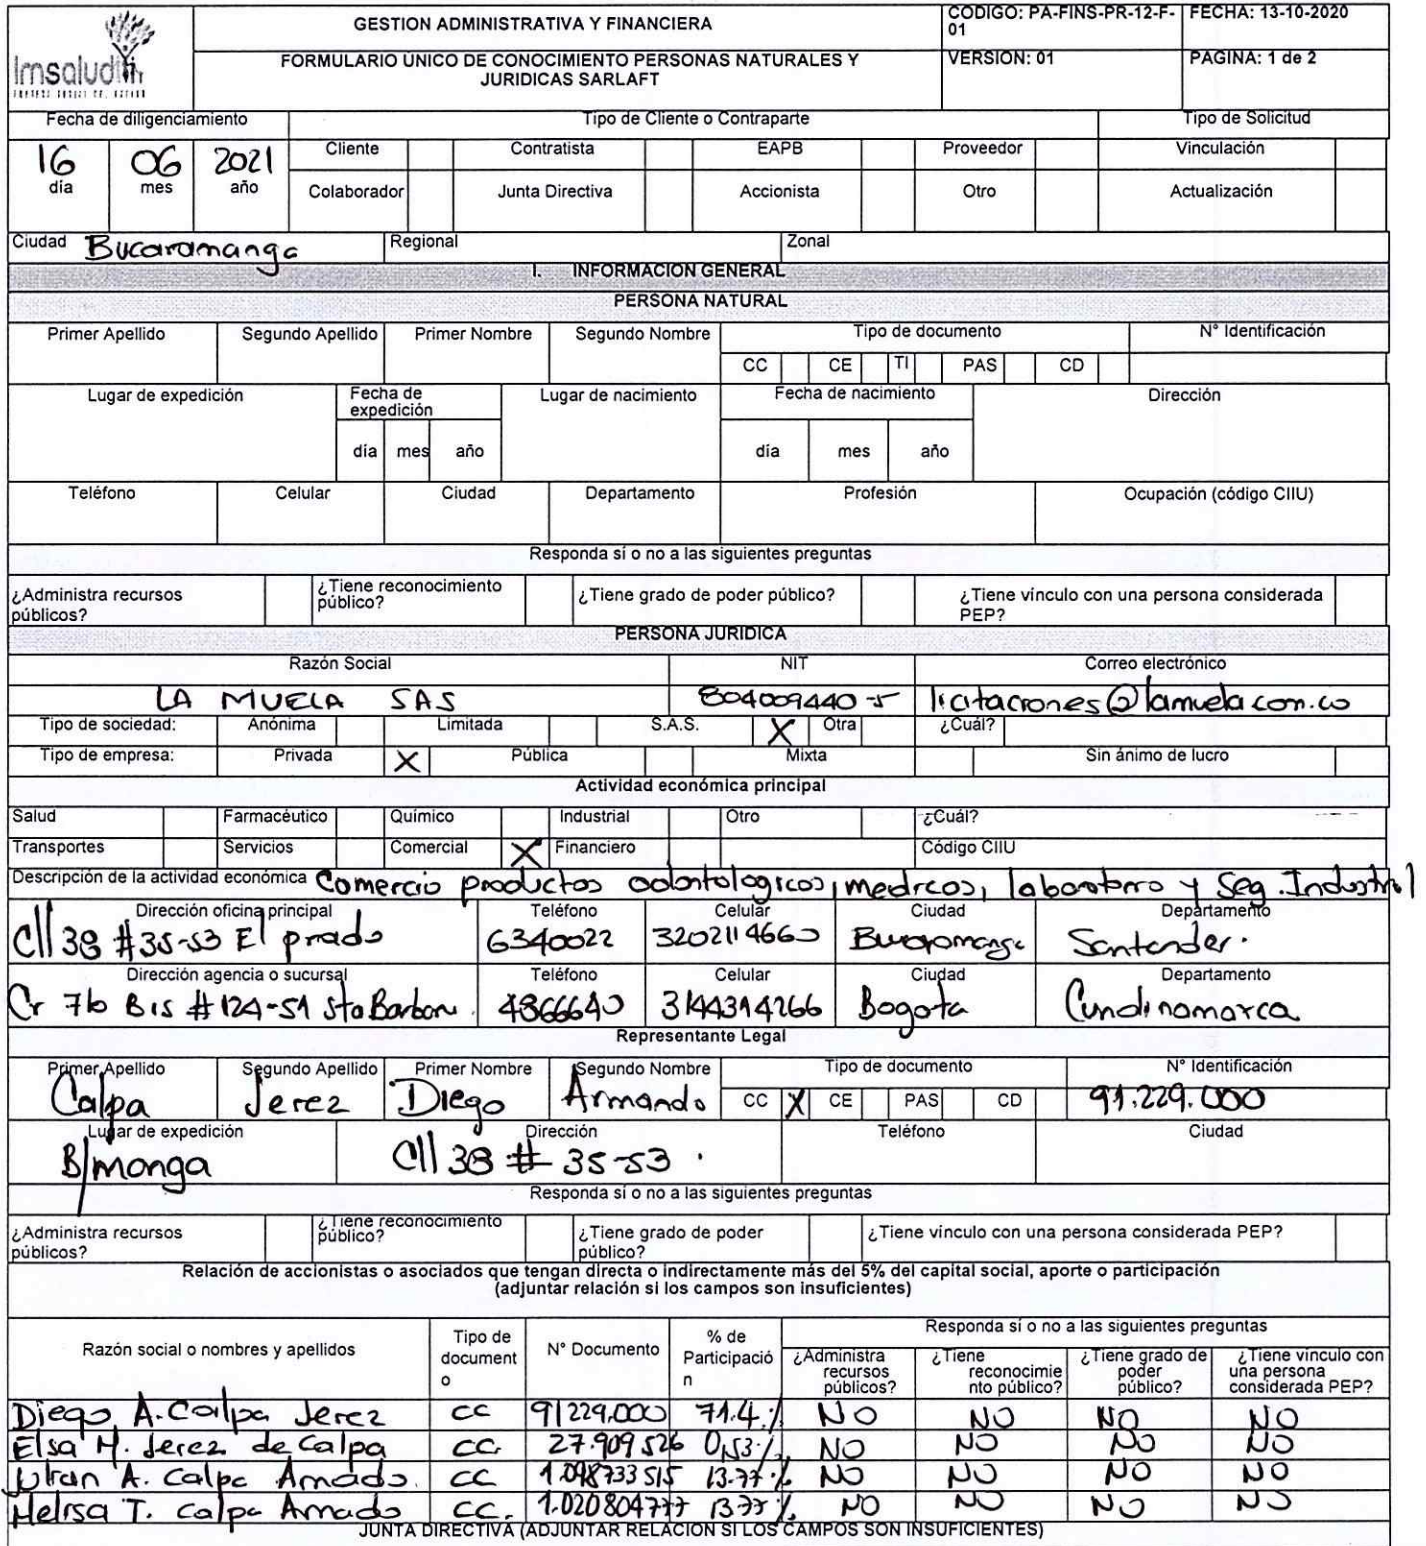 Imsalud
EMPRESA SOCIAL DEL ESTADO
GESTION ADMINISTRATIVA Y FINANCIERA
CODIGO: PA-FINS-PR-12-F-01
FECHA: 13-10-2020
FORMULARIO ÚNICO DE CONOCIMIENTO PERSONAS NATURALES Y JURIDICAS SARLAFT
VERSION: 01
PAGINA: 1 de 2
Fecha de diligenciamiento Tipo de Cliente o Contraparte Tipo de Solicitud
16 06 2021 Cliente Contratista EAPB Proveedor Vinculación
día mes año Colaborador Junta Directiva Accionista Otro Actualización
Ciudad Bucaramanga Regional Zonal
I. INFORMACION GENERAL
PERSONA NATURAL
Primer Apellido Segundo Apellido Primer Nombre Segundo Nombre Tipo de documento N° Identificación
CC CE TI PAS CD
Lugar de expedición Fecha de expedición Lugar de nacimiento Fecha de nacimiento Dirección
día mes año día mes año
Teléfono Celular Ciudad Departamento Profesión Ocupación (código CIIU)
Responda sí o no a las siguientes preguntas
¿Administra recursos públicos? ¿Tiene reconocimiento público? ¿Tiene grado de poder público? ¿Tiene vínculo con una persona considerada PEP?
PERSONA JURIDICA
Razón Social NIT Correo electrónico
LA MUELA SAS 804009440-5 licitaciones@lamuela.com.co
Tipo de sociedad: Anónima Limitada S.A.S. X Otra ¿Cuál?
Tipo de empresa: Privada X Pública Mixta Sin ánimo de lucro
Actividad económica principal
Salud Farmacéutico Químico Industrial Otro ¿Cuál?
Transportes Servicios Comercial X Financiero Código CIIU
Descripción de la actividad económica Comercio productos odontologicos, medicos, laboratorio y Seg. Industrial
Dirección oficina principal Teléfono Celular Ciudad Departamento
Cll 38 #35-53 El prado 6340022 3202114660 Bucaramanga Santander.
Dirección agencia o sucursal Teléfono Celular Ciudad Departamento
Cr 7b Bis #124-51 Sta Barbara 4866640 3144314266 Bogota Cundinamarca
Representante Legal
Primer Apellido Segundo Apellido Primer Nombre Segundo Nombre Tipo de documento N° Identificación
Calpa Jerez Diego Armando CC X CE PAS CD 91.229.000
Lugar de expedición Dirección Teléfono Ciudad
B/manga Cll 38 # 35-53.
Responda sí o no a las siguientes preguntas
¿Administra recursos públicos? ¿Tiene reconocimiento público? ¿Tiene grado de poder público? ¿Tiene vínculo con una persona considerada PEP?
Relación de accionistas o asociados que tengan directa o indirectamente más del 5% del capital social, aporte o participación
(adjuntar relación si los campos son insuficientes)
Responda sí o no a las siguientes preguntas
Razón social o nombres y apellidos Tipo de documento N° Documento % de Participación ¿Administra recursos públicos? ¿Tiene reconocimiento público? ¿Tiene grado de poder público? ¿Tiene vínculo con una persona considerada PEP?
Diego A. Calpa Jerez CC 91229.000 71.4% NO NO NO NO
Elsa M. Jerez de Calpa CC. 27.909526 0,53% NO NO NO NO
Julian A. Calpa Amado. CC 1.098733515 13.77% NO NO NO NO
Melisa T. Calpa Amado CC. 1.020804777 13.77% NO NO NO NO
JUNTA DIRECTIVA (ADJUNTAR RELACION SI LOS CAMPOS SON INSUFICIENTES)